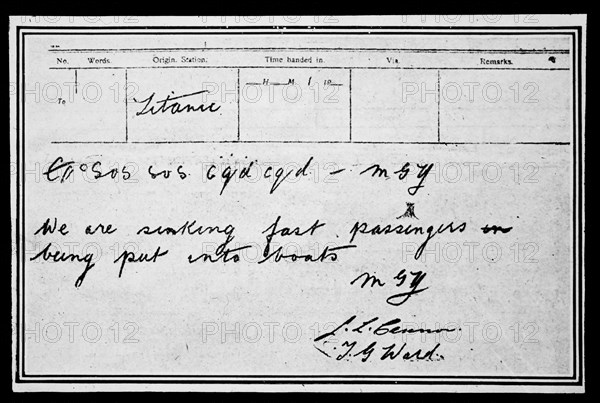 No. Words. Origin. Station. Time handed in. Via. Remarks.
To
H M
Titanic
SOS SOS cqd cqd - MGY
We are sinking fast passengers
being put into boats
MGY
T G Ward.
PHOTO12